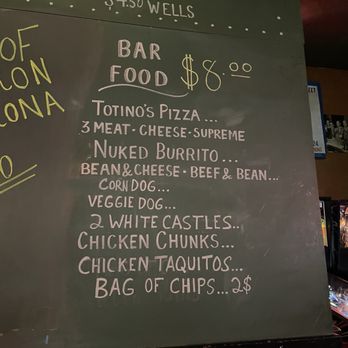 $4.50 WELLS
OF
ONA
BAR
FOOD $8.00
TOTINO'S PIZZA...
3 MEAT - CHEESE - SUPREME
NUKED BURRITO...
BEAN & CHEESE - BEEF & BEAN...
CORN DOG...
VEGGIE DOG...
2 WHITE CASTLES...
CHICKEN CHUNKS...
CHICKEN TAQUITOS...
BAG OF CHIPS...2$